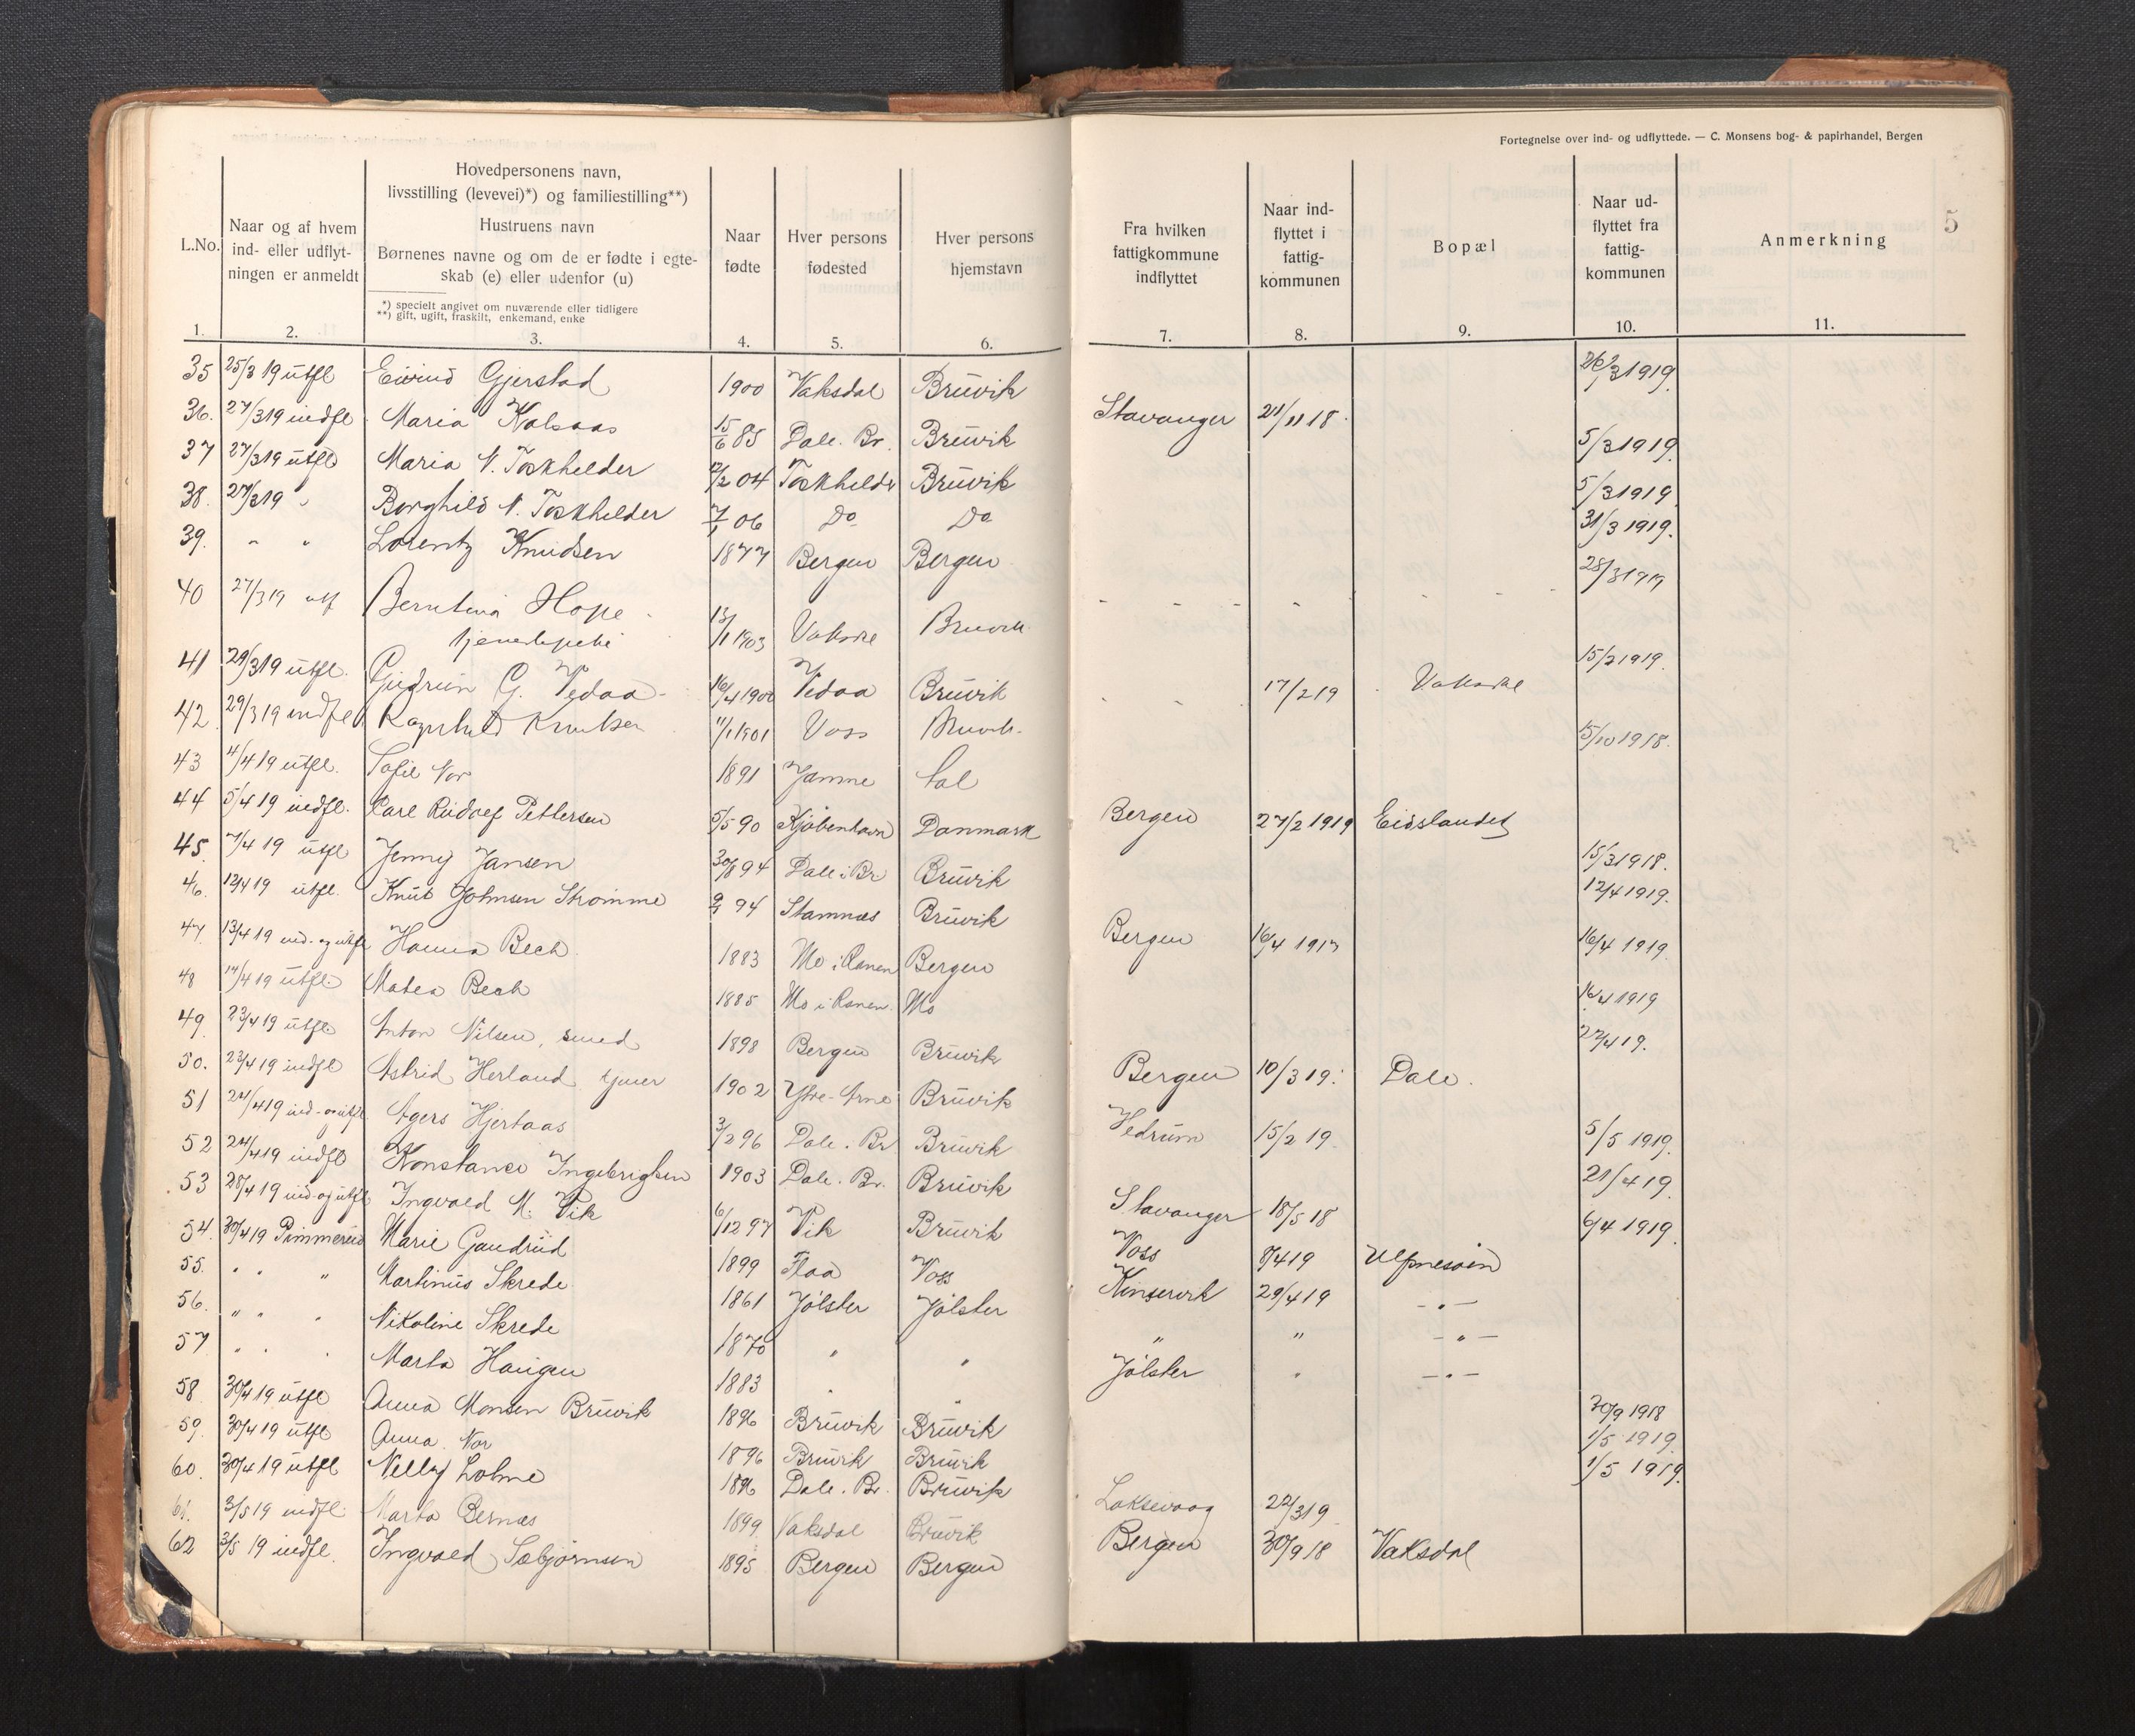 Fortegnelse over ind- og udflyttede. — C. Monsens bog- & papirhandel, Bergen
5
L.No.
Naar og af hvem ind- eller udflyt-ningen er anmeldt
Hovedpersonens navn,
livsstilling (levevei)*) og familiestilling**)
Hustruens navn
Børnenes navne og om de er fødte i egte-
skab (e) eller udenfor (u)
*) specielt angivet om nuværende eller tidligere
**) gift, ugift, fraskilt, enkemand, enke
Naar fødte
Hver persons fødested
Hver persons hjemstavn
Fra hvilken fattigkommune indflyttet
Naar ind-flyttet i fattig-kommunen
Bopæl
Naar ud-flyttet fra fattig-kommunen
Anmerkning
1. 2. 3. 4. 5. 6. 7. 8. 9. 10. 11.
35 25/3 19 utfl Eivind Gjerstad 1900 Vaksdal Bruvik 26/3 1919.
36. 27/3 19 indfl Maria Kalsaas 15/6 85 Dale. Br. Bruvik Stavanger 21/11 18.
37 27/3 19 utfl Maria N. Toskhelder 2/2 04 Toskhelder Bruvik 5/3 1919.
38. 27/3 19 " Borghild N. Toskhelder 7/1 06 Do Do 5/3 1919
39. " " Lorentz Knudsen 1877 Bergen Bergen 31/3 1919.
40 27/3 19 utf Berntina Hope 13/1 1903 Bruvik 28/3 1919
tjenestepike
41 29/3 19 utfl. Gudrun G. Vedaa 16/4 1900 Vedaa Bruvik 15/2 1919.
42. 29/3 19 indfl Ragnhild Knutsen 11/1 1901 Voss Bruvik 17/2 19
43 4/4 19 utfl. Sofie Nor 1891 15/10 1918.
44 5/4 19 indfl. Carl Rudolf Pettersen 5/5 90 Kjøbenhavn Danmark Bergen 27/2 1919 Eidslandet
45. 7/4 19 utfl Jenny Jansen 30/8 94 Dale i Br Bruvik 15/3 1918.
46. 12/4 19 utfl. Knut Johnsen Strømme 94 Stamnæs Bruvik 12/4 1919.
47. 13/4 19 ind- og utfl Hanna Bech 1883 Mo i Ranen Bergen Bergen 16/4 1917 16/4 1919.
48 14/4 19 utfl. Matea Bech 1885 Mo i Ranen. Mo 16/4 1919
49. 23/4 19 utfl. Anton Nilsen, smed 1898 Bergen Bruvik 22/4 19.
50. 23/4 19 indfl Astrid Herland tjener 1902 Ytre-Arne Bruvik Bergen 10/3 19. Dale.
51 24/4 19 ind- og utfl Agers Hjertaas 3/2 96 Dale. Br Bruvik Hedrum 15/2 19. 5/5 1919.
52 24/4 19 indfl Konstance Ingebrigtsen 1903 Dale. Br. Bruvik 21/4 19.
53 28/4 19 ind- og utfl Ingvald M. Vik 6/12 97 Vik Bruvik Stavanger 18/5 18 6/4 1919.
54. 30/4 19 Marie Gandrud 1899 Flaa Voss Voss 8/4 19
55. " " " Martinus Skrede 1861 Jølster Jølster Kinservik 29/4 19 — " —
56. " " " Nikoline Skrede 1870 " " " " — " —
57 " " " Marta Haugen 1883 " " Jølster " — " —
58 30/4 19 utfl Anna Monsen Bruvik 1896 Bruvik Bruvik 30/9 1918
59. 30/4 19 utfl Anna Nor 1896 Bruvik Bruvik 1/5 1919.
60. 30/4 19 utfl Nelly Lohne 1896 Dale. Br. Bruvik 1/5 1919.
61. 3/5 19 indfl. Marta 1899. Vaksdal Bruvik Laksevaag 22/3 19
62 3/5 19 indfl. Ingvald Sæbjørnsen 1895 Bergen Bergen Bergen 30/9 18 Vaksdal